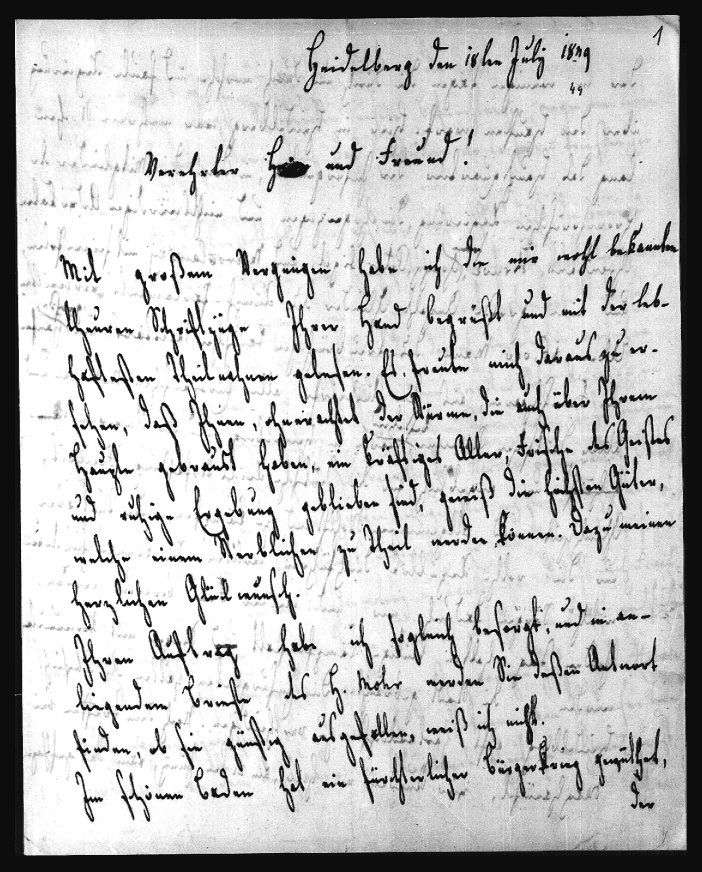 1
Heidelberg den 18ten July 1849
49
Verehrter und Freund!
Mit großem Vergnügen habe ich die mir wohl bekannten
theuren Schriftzüge Ihrer Hand begrüßt und mit der leb-
haftesten Theilnahme gelesen. Es freute mich daraus zu er-
sehen, daß Ihnen, ohnerachtet der Stürme, die auch über Ihrem
Haupte gebraust haben, ein kräftiges Alter, Frische des Geistes
und ruhige Ergebung geblieben sind, gewiß die höchsten Güter,
welche einem Sterblichen zu Theil werden können. Dazu meinen
herzlichen Glückwunsch.
Ihren Auftrag habe ich sogleich besorgt, und in an-
liegendem Briefe des H. werden Sie dessen Antwort
finden, ob sie günstig ausgefallen, weiß ich nicht.
Im schönen Baden hat ein fürchterlicher Bürgerkrieg gewüthet,
der